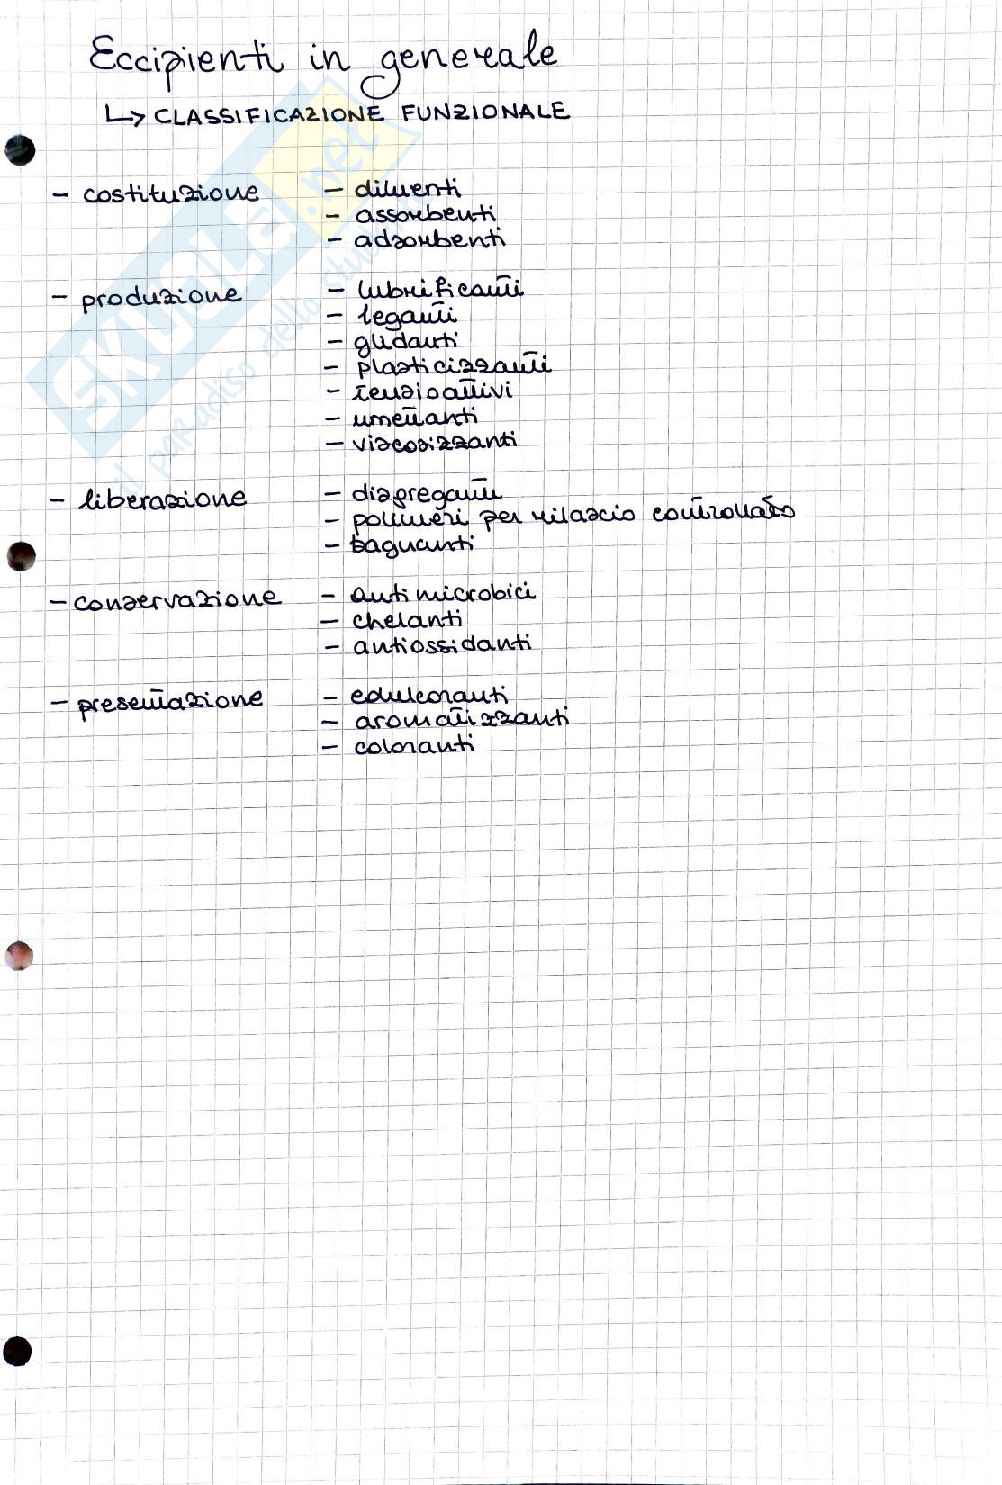 Eccipienti in generale
↳ CLASSIFICAZIONE FUNZIONALE
- costituzione - diluenti
- assorbenti
- adsorbenti
- produzione - lubrificanti
- leganti
- glidanti
- plasticizzanti
- tensioattivi
- umettanti
- viscosizzanti
- liberazione - disgreganti
- polimeri per rilascio controllato
- bagnanti
- conservazione - antimicrobici
- chelanti
- antiossidanti
- presentazione - edulcoranti
- aromatizzanti
- coloranti
SKUOLA.net
il paradiso dello studente